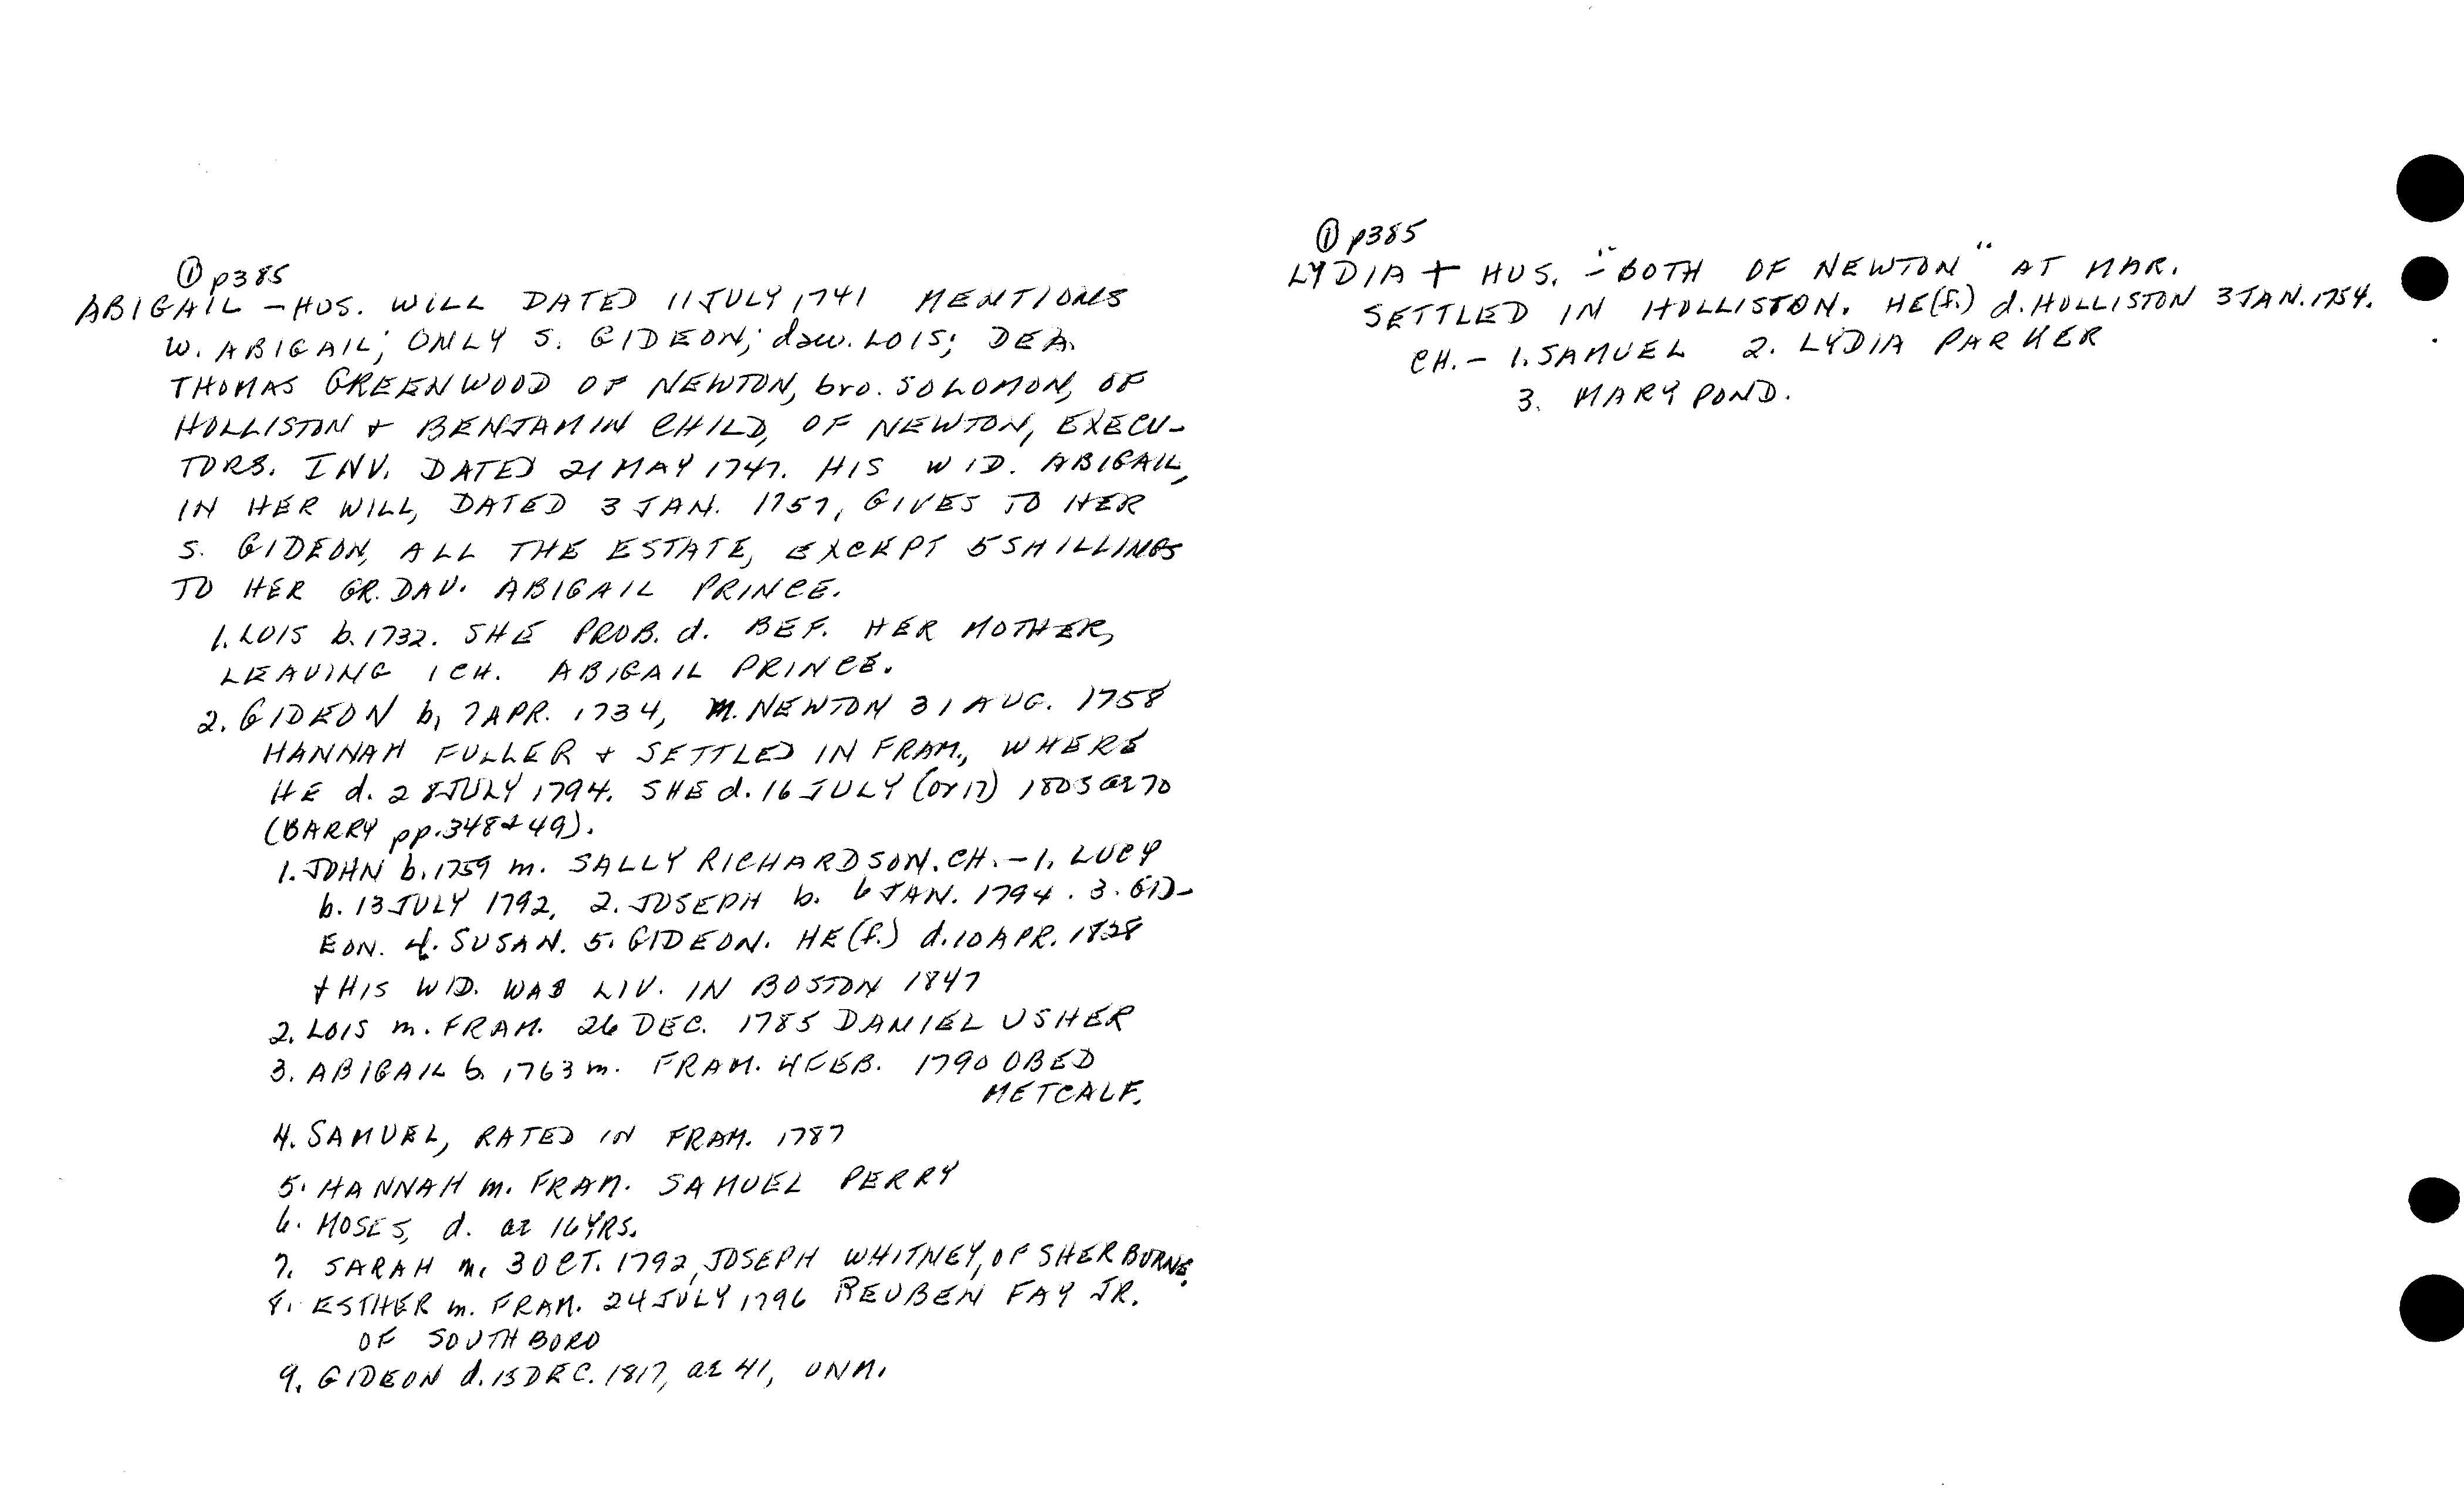 ① p385
ABIGAIL - HUS. WILL DATED 11 JULY 1741 MENTIONS
W. ABIGAIL; ONLY S. GIDEON; dau. LOIS; DEA.
THOMAS GREENWOOD OF NEWTON, bro. SOLOMON, OF
HOLLISTON + BENJAMIN CHILD, OF NEWTON, EXECU-
TORS. INV. DATED 21 MAY 1747. HIS WID. ABIGAIL,
IN HER WILL, DATED 3 JAN. 1757, GIVES TO HER
S. GIDEON, ALL THE ESTATE, EXCEPT 5 SHILLINGS
TO HER GR. DAU. ABIGAIL PRINCE.
1. LOIS b. 1732. SHE PROB. d. BEF. HER MOTHER,
LEAVING 1 CH. ABIGAIL PRINCE.
2. GIDEON b. 7 APR. 1734, M. NEWTON 31 AUG. 1758
HANNAH FULLER + SETTLED IN FRAM., WHERE
HE d. 28 JULY 1794. SHE d. 16 JULY (or 17) 1803 ae 70
(BARRY pp. 348 + 49).
1. JOHN b. 1759 m. SALLY RICHARDSON. CH. - 1. LUCY
b. 13 JULY 1792, 2. JOSEPH b. 6 JAN. 1794. 3. GID-
EON. 4. SUSAN. 5. GIDEON. HE (f.) d. 10 APR. 1828
+ HIS WID. WAS LIV. IN BOSTON 1847
2. LOIS m. FRAM. 26 DEC. 1785 DANIEL USHER
3. ABIGAIL b. 1763 m. FRAM. 4 FEB. 1790 OBED
METCALF.
4. SAMUEL, RATED IN FRAM. 1787
5. HANNAH m. FRAM. SAMUEL PERRY
6. MOSES, d. ae 16 YRS.
7. SARAH m. 3 OCT. 1792, JOSEPH WHITNEY, OF SHERBURNE.
8. ESTHER m. FRAM. 24 JULY 1796 REUBEN FAY JR.
OF SOUTHBORO
9. GIDEON d. 15 DEC. 1817, ae 41, UNM.
① p385
LYDIA + HUS. - "BOTH OF NEWTON" AT MAR.
SETTLED IN HOLLISTON. HE (f.) d. HOLLISTON 3 JAN. 1754.
CH. - 1. SAMUEL 2. LYDIA PARKER
3. MARY POND.